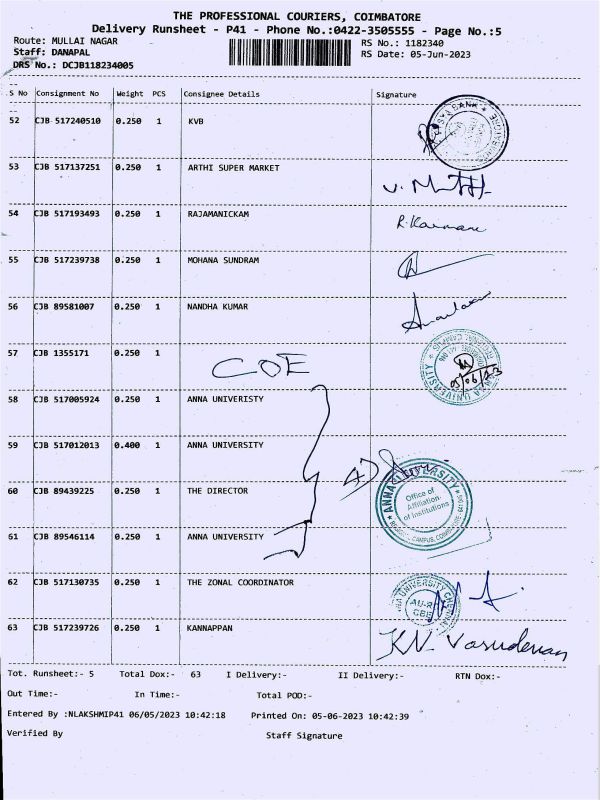 THE PROFESSIONAL COURIERS, COIMBATORE
Delivery Runsheet - P41 - Phone No.:0422-3505555 - Page No.:5
Route: MULLAI NAGAR RS No.: 1182340
Staff: DANAPAL RS Date: 05-Jun-2023
DRS No.: DCJB118234005
S No Consignment No Weight PCS Consignee Details Signature
52 CJB 517240510 0.250 1 KVB
53 CJB 517137251 0.250 1 ARTHI SUPER MARKET
54 CJB 517193493 0.250 1 RAJAMANICKAM
55 CJB 517239738 0.250 1 MOHANA SUNDRAM
56 CJB 89581007 0.250 1 NANDHA KUMAR
57 CJB 1355171 0.250 1
COE
05/06/23
58 CJB 517005924 0.250 1 ANNA UNIVERISTY
59 CJB 517012013 0.400 1 ANNA UNIVERSITY
60 CJB 89439225 0.250 1 THE DIRECTOR
ANNA UNIVERSITY
Office of
Affiliation
of Institutions
61 CJB 89546114 0.250 1 ANNA UNIVERSITY
62 CJB 517130735 0.250 1 THE ZONAL COORDINATOR
63 CJB 517239726 0.250 1 KANNAPPAN
KN. Vasudevan
Tot. Runsheet:- 5 Total Dox:- 63 I Delivery:- II Delivery:- RTN Dox:-
Out Time:- In Time:- Total POD:-
Entered By :NLAKSHMIP41 06/05/2023 10:42:18 Printed On: 05-06-2023 10:42:39
Verified By Staff Signature